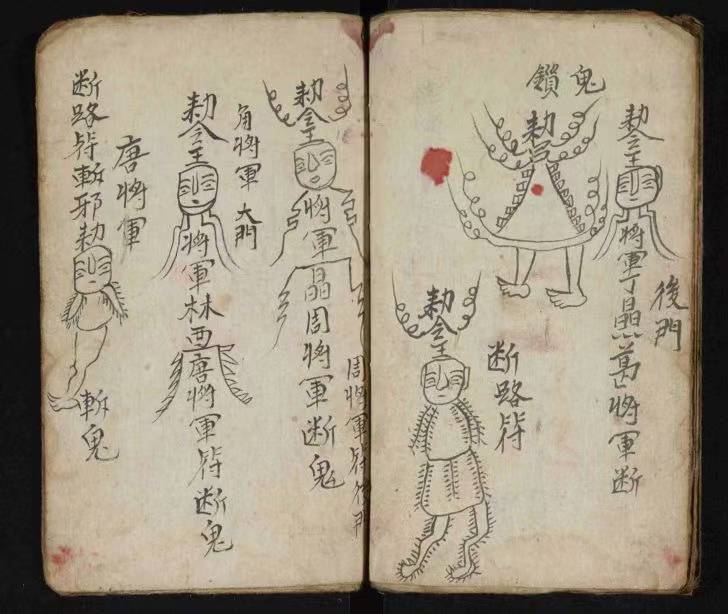 鬼鎖
勅令
勅令主
將軍丁晶葛將軍断
後門
断路符
勅令主
勅令主
將軍晶周將軍断鬼
周將軍符後門
角將軍 大門
勅令主
將軍林西唐將軍符断鬼
唐將軍
断路符斬邪勅
斬鬼